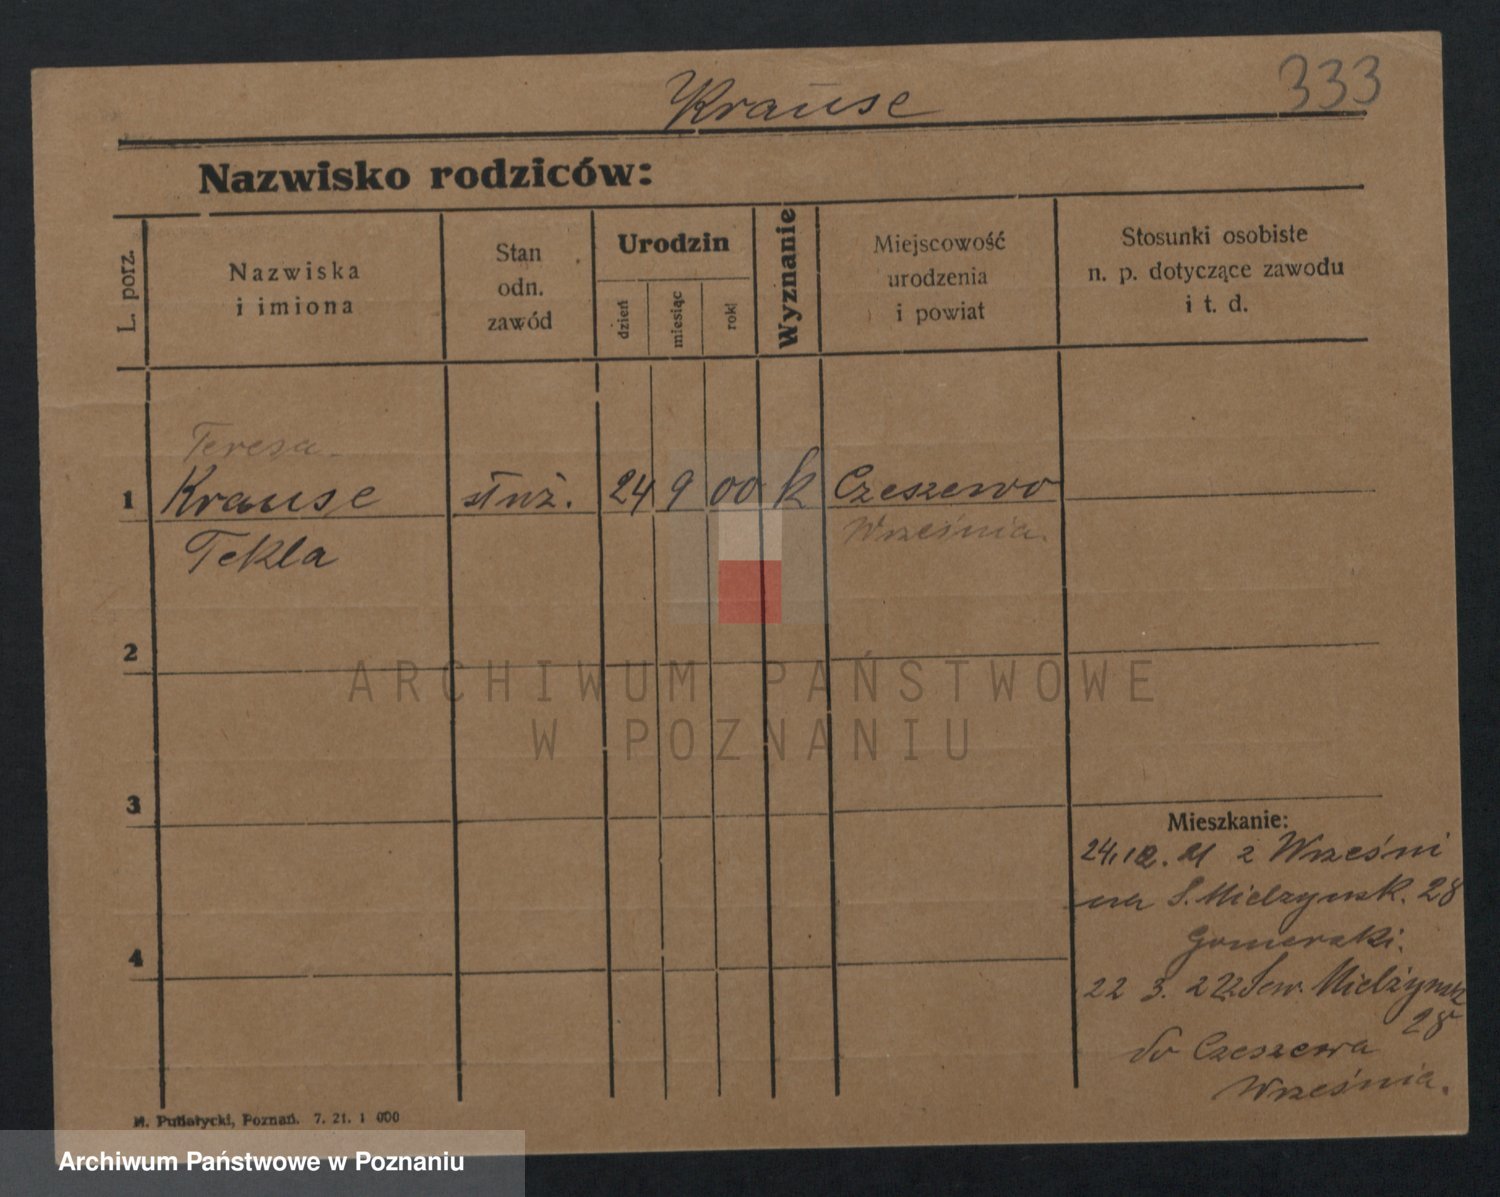 Krause
333
Nazwisko rodziców:
L. porz.
Nazwiska
i imiona
Stan
odn.
zawód
Urodzin
dzień
miesiąc
rok
Wyznanie
Miejscowość
urodzenia
i powiat
Stosunki osobiste
n. p. dotyczące zawodu
i t. d.
Teresa
1 Krause służ. 24 9 00 k Czeszewo
Września.
Tekla
2
ARCHIWUM PAŃSTWOWE
W POZNANIU
3
Mieszkanie:
24.12.21 z Wrześni
na S. Mielzynsk. 28
4
22 3. 22 Sew. Mielżynsk
28
do Czeszewa
Września.
Poznań. 7. 21. 1 000
Archiwum Państwowe w Poznaniu